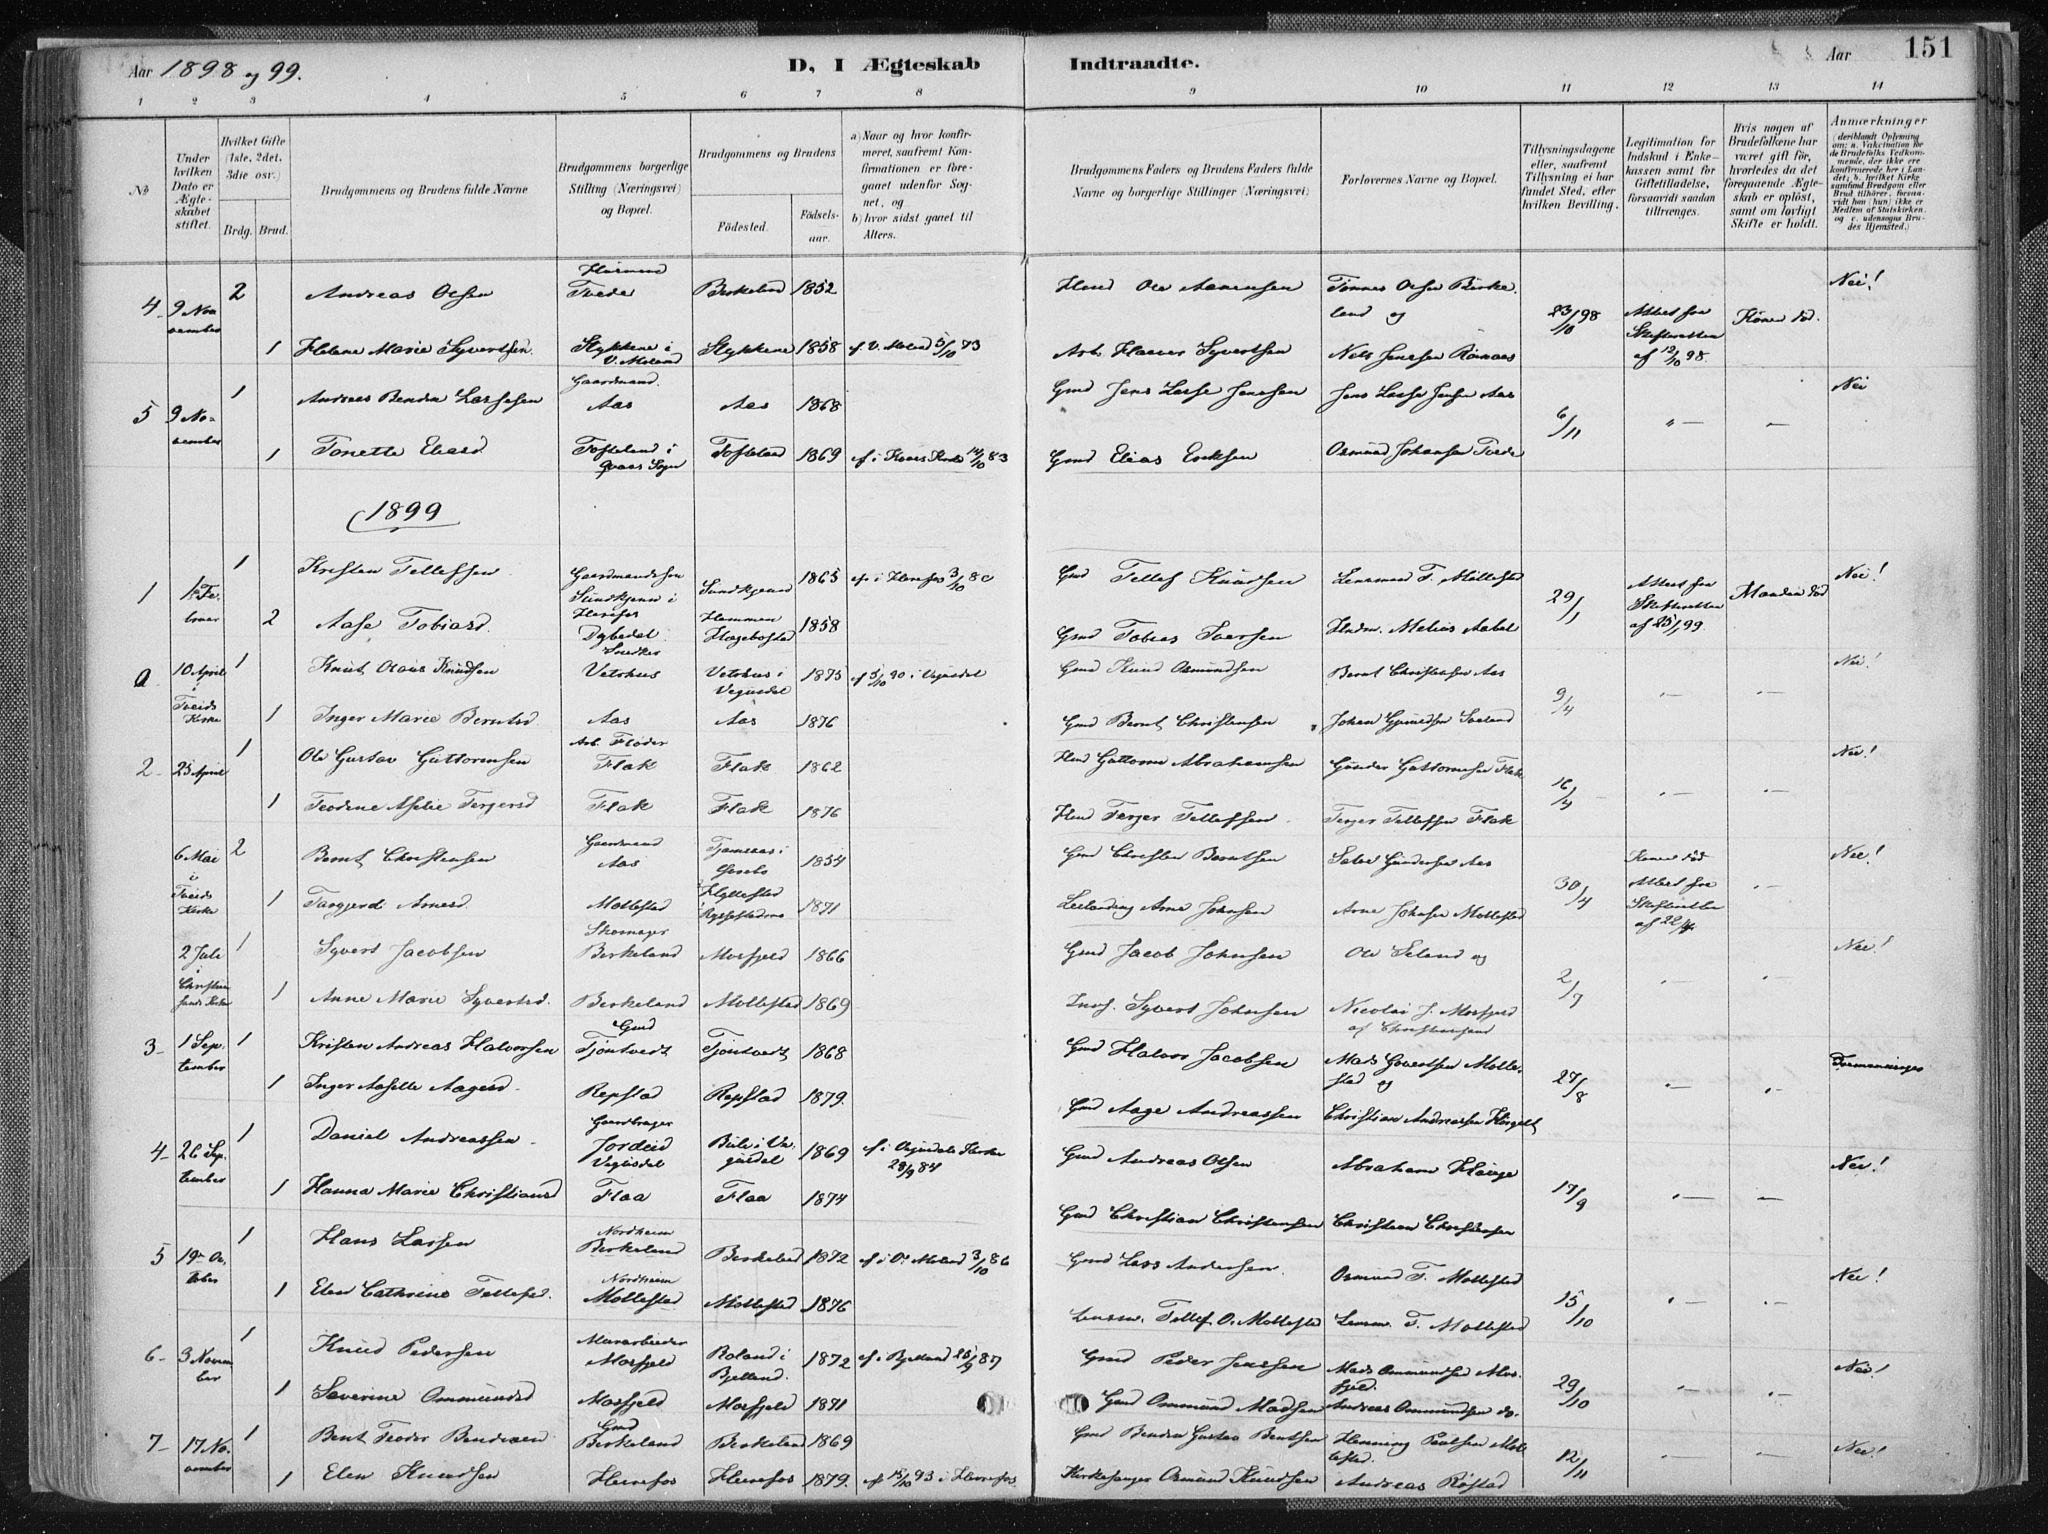 Aar 1898 og 99.
D. I Ægteskab Indtraadte.
Aar
151
1 2 3 4 5 6 7 8 9 10 11 12 13 14
No
Under hvilken Dato er Ægteskabet stiftet.
Hvilket Gifte (1ste, 2det, 3die osv.)
Brdg. Brud.
Brudgommens og Brudens fulde Navne
Brudgommens borgerlige Stilling (Næringsvei) og Bopæl.
Brudgommens og Brudens
Fødested.
Fødselsaar.
a) Naar og hvor konfirmeret, saafremt Konfirmationen er foregaaet udenfor Sognet, og
b) hvor sidst gaaet til Alters.
Brudgommens Faders og Brudens Faders fulde Navne og borgerlige Stillinger (Næringsvei)
Forlovernes Navne og Bopæl.
Tillysningsdagene eller, saafremt Tillysning ei har fundet Sted, efter hvilken Bevilling.
Legitimation for Indskud i Enkekassen samt for Giftetilladelse, forsaavidt saadan tiltrænges.
Hvis nogen af Brudefolkene har været gift før, hvorledes da det foregaaende Ægteskab er opløst, samt om lovligt Skifte er holdt.
Anmærkninger
(deriblandt Oplysning om: a. Vakcination for de Brudefolks Vedkommende, der ikke ere konfirmerede her i Landet; b. hvilket Kirkesamfund Brudgom eller Brud tilhører, forsaavidt han (hun) ikke er Medlem af Statskirken, og c. udensogns Brudes Hjemsted.)
4 9 November 2 Andreas Olsen Tveide Birkeland 1852 Hmd Ole Aanensen Tønnes Olsen Birkeland og 23/10 98 Attest fra Skifteretten af 12/10 98. Konen død. Nei!
1 Helene Marie Syvertsen Stykkene i V. Moland Stykkene 1858 cf V. Moland 5/10 73 Arb. Syvertsen Nels Jensen
5 9 November 1 Andreas Lassesen Gaardmand. Aas Aas 1868 Gmd Jens Lasse Jensen Jens Lasse Jensen Aas 6/11 " — — Nei
1 Tonette Eliasd Tofteland i Sogn Tofteland 1869 cf i Kirke 14/10 83 Gmd Elias Eriksen Osmund Johansen Tveide
1899
1 1 Februar 1 Kristen Tellefsen Gaardmandssøn Sundkjønn i Herefos Sundkjønn 1865 cf i Herefos 3/10 80 Gmd Tellef Knudsen Lensmand T. Mollestad 29/1 Attest fra Skifteretten af 25/1 99. Manden død Nei!
2 Aase Tobiasd. Dybedal Hommen Hægebostad 1858 Gmd Tobias Sversen Melius Aabel
a 10 April i Tveids Kirke 1 Knut Olaus Knudsen Snedker Vetrhus Vetrhus i Vegusdal 1875 cf 5/10 90 i Vegusdal Gmd Knud Osmundsen Bernt Christensen Aas 9/4 " — " — Nei!
1 Inger Marie Berntsd. Aas Aas 1876 Gmd Bernt Christensen Johan Gjeruldsen Sveland
2 23 April 1 Ole Gustav Guttormsen Arb. Fløder Flak Flak 1862 Hmd Guttorm Abrahamsen Gunder Guttormsen Flak 16/4 " — " — Nei!
1 Teodine Aselie Terjersd Flak Flak 1876 Hmd Terjer Tellefsen Terjer Tellefsen Flak
6 Mai i Tveids Kirke 2 Bernt Christensen Gaardmand Aas i 1854 Gmd Christen Berntsen Salve Gundersen Aas 30/4 Konen død Attest fra Skifteretten af 22/4 " — Nei!
1 Torgjerd Arnesd Mollestad Hyllestad 1871 Leilænding Arne Johnsen Arne Johnsen Mollestad
2 Juli i Christiansands Kirke 1 Syvert Jacobsen Skomager Birkeland Mosfjeld 1866 Gmd Jacob Johnsen Ole Seland og 2/7 " — " — Nei!
1 Anne Marie Syvertsd. Birkeland Mollestad 1869 Syvert Johnsen Nicolai J. Mosfjeld af Christiansand
3 1 September 1 Kristen Andreas Halvorsen Gmd Tjøntvedt Tjøntvedt 1868 Gmd Halvor Jacobsen Mads Govertsen Mollestad og 27/8 " — " —
1 Inger Aselle Aagesd. Repstad Repstad 1879. Gmd Aage Andreassen Christian Andreassen
4 26 September 1 Daniel Andreassen Gaardbruger Jordeid Vegusdal i Vegusdal 1869 cf i Vegusdals Kirke 28/9 84 Gmd Andreas Olsen Abraham Hauge 17/9 " — — Nei!
1 Hanna Marie Christiansd Flaa Flaa 1874 Gmd Christian Christensen Christian Christensen
5 19 October 1 Hans Larsen Nordheim Birkeland Birkeland 1872 cf i V. Moland 3/10 86 Gmd Lars Andersen. Osmund T. Mollestad 15/10 " — " — Nei!
1 Elen Cathrine Tellefsd. Nordheim Mollestad Mollestad 1876 Lensm. Tellef O. Mollestad Lensm. T. Mollestad
6 3 November 1 Knud Pedersen Murarbeider Mosfjeld Roland i Bjelland. 1872 cf i Bjelland 25/9 87 Gmd Peder Jensen Mads Ommundsen Mosfjeld. 29/10 " — " — Nei!
1 Severine Ommundsd Mosfjeld Mosfjeld 1871 Gmd Ommund Madsen Andreas Ommundsen do.
7 17 November 1 Bent Teodor Bendixen Gmd Birkeland Birkeland 1869 Gmd Bendix Gustav Bentsen Henning Paulsen Mollestad. 12/11 " — " — Nei!
1 Elen Knudsen Herefos Herefos 1879. cf 15/10 93 i Herefos Kirkesanger Osmund Knudsen Andreas Røstad